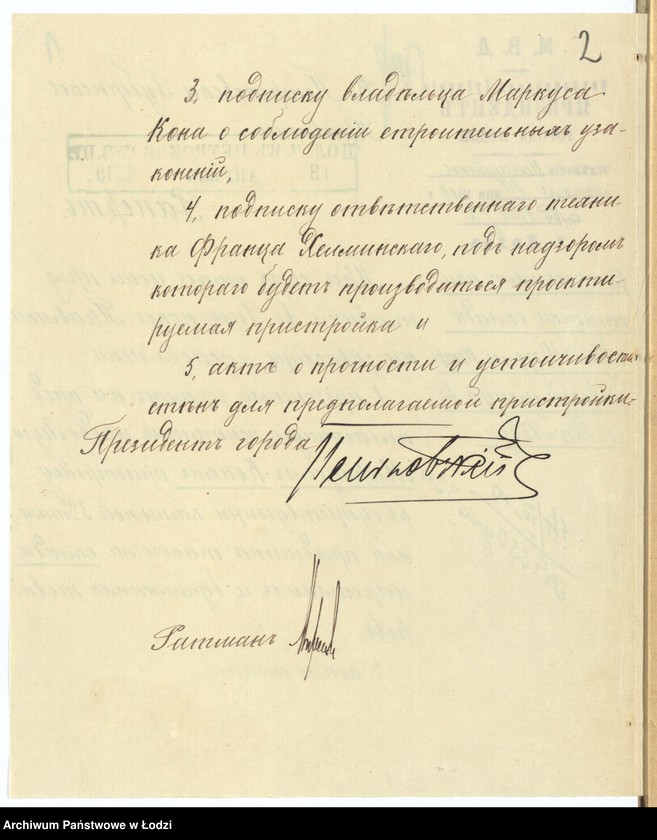 2
3, подписку владѣльца Маркуса
Кона о соблюденіи строительныхъ уза-
коненій,
4, подписку отвѣтственнаго техни-
ка Франца Хелминскаго, подъ надзоромъ
котораго будетъ производиться проекти-
руемая пристройка и
5, актъ о прочности и устойчивости
стѣнъ для предполагаемой пристройки.
Президентъ города
Ратманъ
Archiwum Państwowe w Łodzi